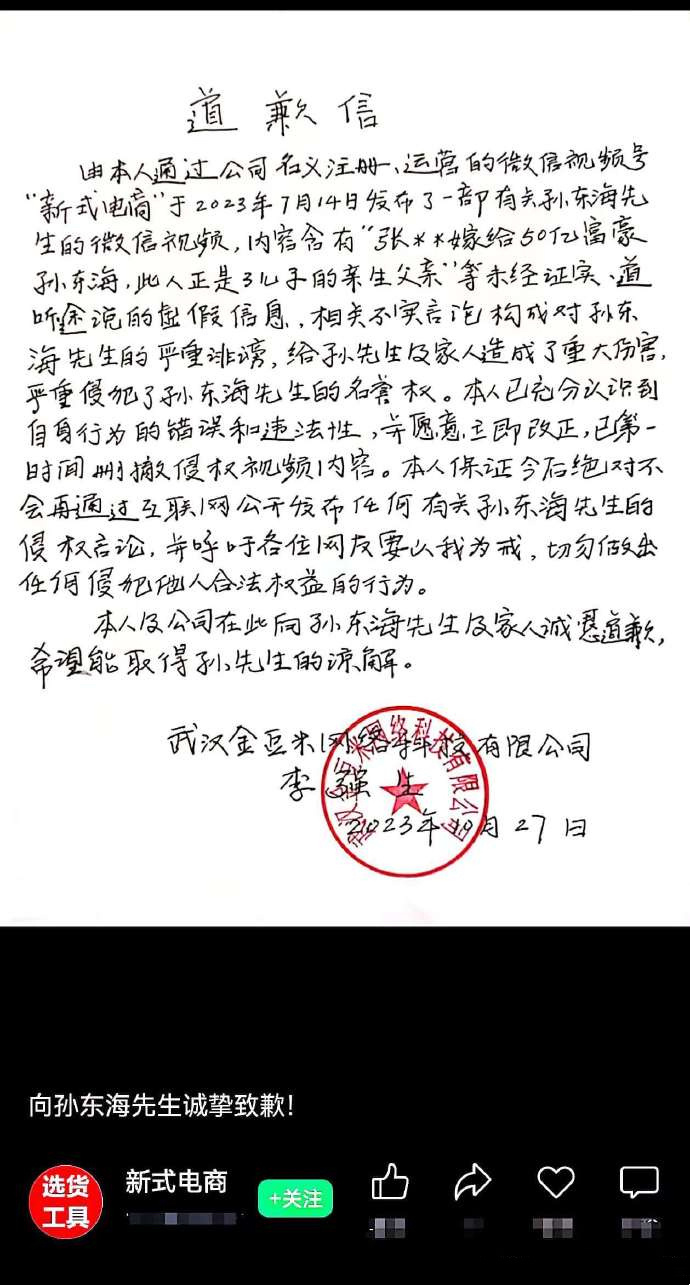 道歉信
由本人通过公司名义注册、运营的微信视频号
"新式电商"于2023年7月14日发布了一部有关孙东海先
生的微信视频，内容含有"张**嫁给50亿富豪
孙东海，此人正是3儿子的亲生父亲"等未经证实、道
听途说的虚假信息，相关不实言论构成对孙东
海先生的严重诽谤，给孙先生及家人造成了重大伤害，
严重侵犯了孙东海先生的名誉权。本人已充分认识到
自身行为的错误和违法性，并愿意立即改正，已第一
时间删撤侵权视频内容。本人保证今后绝对不
会再通过互联网公开发布任何有关孙东海先生的
侵权言论，并呼吁各位网友要以我为戒，切勿做出
任何侵犯他人合法权益的行为。
本人及公司在此向孙东海先生及家人诚恳道歉，
希望能取得孙先生的谅解。
武汉金亚米网络科技有限公司
李强生
2023年10月27日
向孙东海先生诚挚致歉！
选货
工具
新式电商
+关注